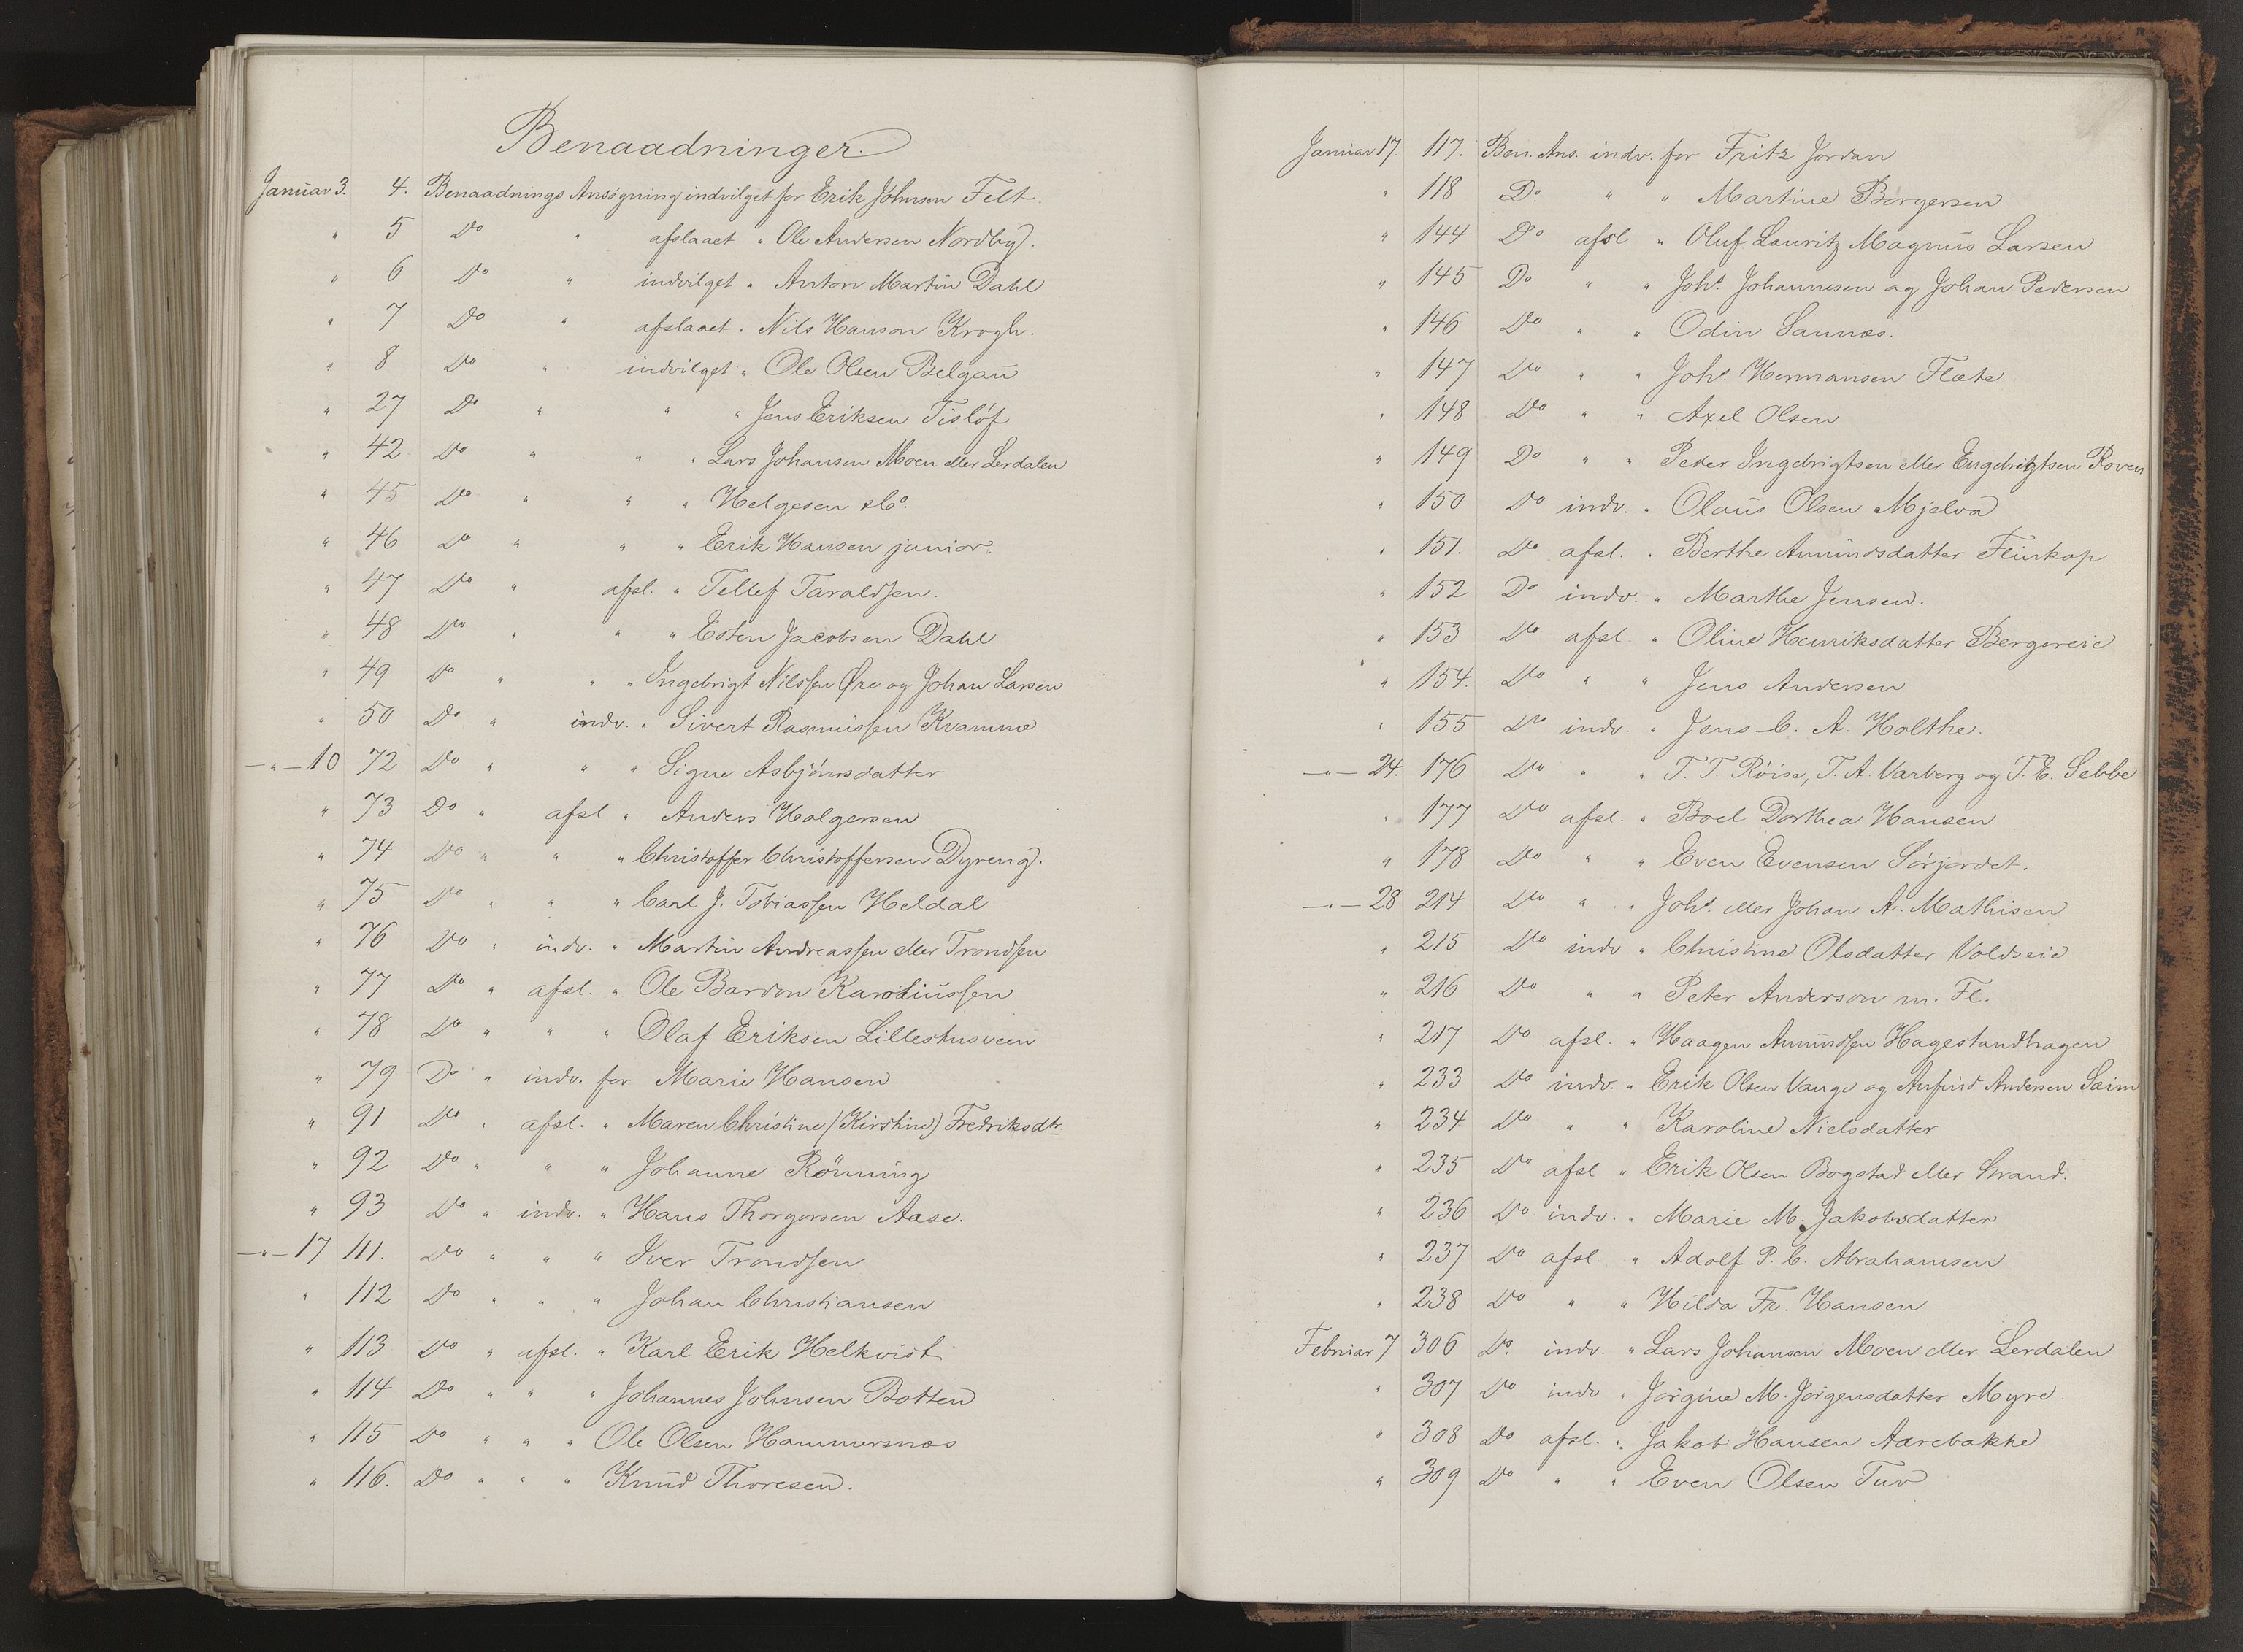 Benaadninger.
Januar 3. 4. Benaadnings Ansøgning indvilget for Erik Johnsen Felt.
" 5 Do " afslaaet " Ole Andersen Nordby.
" 6 Do " indvilget " Anton Martin Dahl
" 7 Do " afslaaet " Nils Hanson Krogh.
" 8 Do " indvilget " Ole Olsen Belgau
" 27 Do " " " Jens Eriksen Tisløf
" 42 Do " " " Lars Johansen Moen eller Lerdalen
" 45 Do " " " Helgesen & Co.
" 46 Do " " " Erik Hansen junior.
" 47 Do " afsl. " Tellef Taraldsen.
" 48 Do " " " Esten Jacobsen Dahl
" 49 Do " " " Ingebrigt Nilssen Øre og Johan Larsen
" 50 Do " indv. " Sivert Rasmussen Kvamme
— " — 10 72 Do " " " Signe Asbjörnsdatter
" 73 Do " afsl " Anders Holgersen
" 74 Do " " " Christoffer Christoffersen Dyreng.
" 75 Do " " " Carl J. Tobiassen Heldal
" 76 Do " indv. " Martin Andreassen eller Trondsen
" 77 Do " afsl. " Ole Bardon Karoliussen
" 78 Do " " " Olaf Eriksen Lillestusveen
" 79 Do " indv. for Marie Hansen
" 91 Do " afsl. " Maren Christine (Kirstine) Fredriksdtr.
" 92 Do " " " Johanne Rönning
" 93 Do " indv. " Hans Thorgersen Aase.
— " — 17 111. Do " " " Iver Trondsen
" 112 Do " " " Johan Christiansen
" 113 Do " afsl. " Karl Erik Helkvist
" 114 Do " " " Johannes Johnsen Botten
" 115 Do " " " Ole Olsen Hammersnes
" 116. Do " " " Knud Thoresen.
Januar 17. 117. Ben. Ans. indv. for Fritz Jordan
" 118 Do. " " Martine Börgersen
" 144 Do afsl " Oluf Lauritz Magnus Larsen
" 145 Do " " Johs. Johannesen og Johan Pedersen
" 146 Do " " Odin Sannæs.
" 147 Do " " Johs. Hermansen Flæte
" 148 Do " " Axel Olsen
" 149 Do " " Peder Ingebrigtsen eller Engebrigtsen Roven
" 150 Do indv. " Olaus Olsen Mjelva
" 151. Do afsl. " Berthe Amundsdatter Flurkop
" 152 Do indv. " Marthe Jensen.
" 153 Do afsl. " Oline Henriksdatter Bergereie
" 154. Do " " Jens Andersen
" 155 Do indv. " Jens C. A. Holthe.
— " — 24. 176 Do " " T. T. Röise, T. A. Varberg og T. E. Sebbe
" 177 Do afsl. " Boel Dorthea Hansen
" 178 Do " " Even Evensen Sörjordet.
— " — 28 214 Do " " Johs. eller Johan A. Mathisen
" 215 Do indv " Christine Olsdatter Voldseie
" 216 Do " " Peter Anderson m. Fl.
" 217 Do afsl. " Haagen Amundsen Hagestandhagen
" 233 Do indv. " Erik Olsen Vange og Anfind Andersen Sæim
" 234 Do " " Karoline Nielsdatter
" 235 Do afsl " Erik Olsen Bogstad eller Strand.
" 236 Do indv. " Marie M. Jakobsdatter
" 237 Do afsl. " Adolf P. C. Abrahamsen
" 238 Do " " Hilda Fr. Hansen
Februar 7 306 Do. indv. " Lars Johansen Moen eller Lerdalen
" 307 Do indv " Jörgine M. Jörgensdatter Myre
" 308 Do afsl. " Jakob Hansen Aarebakke
" 309 Do " " Even Olsen Tuv